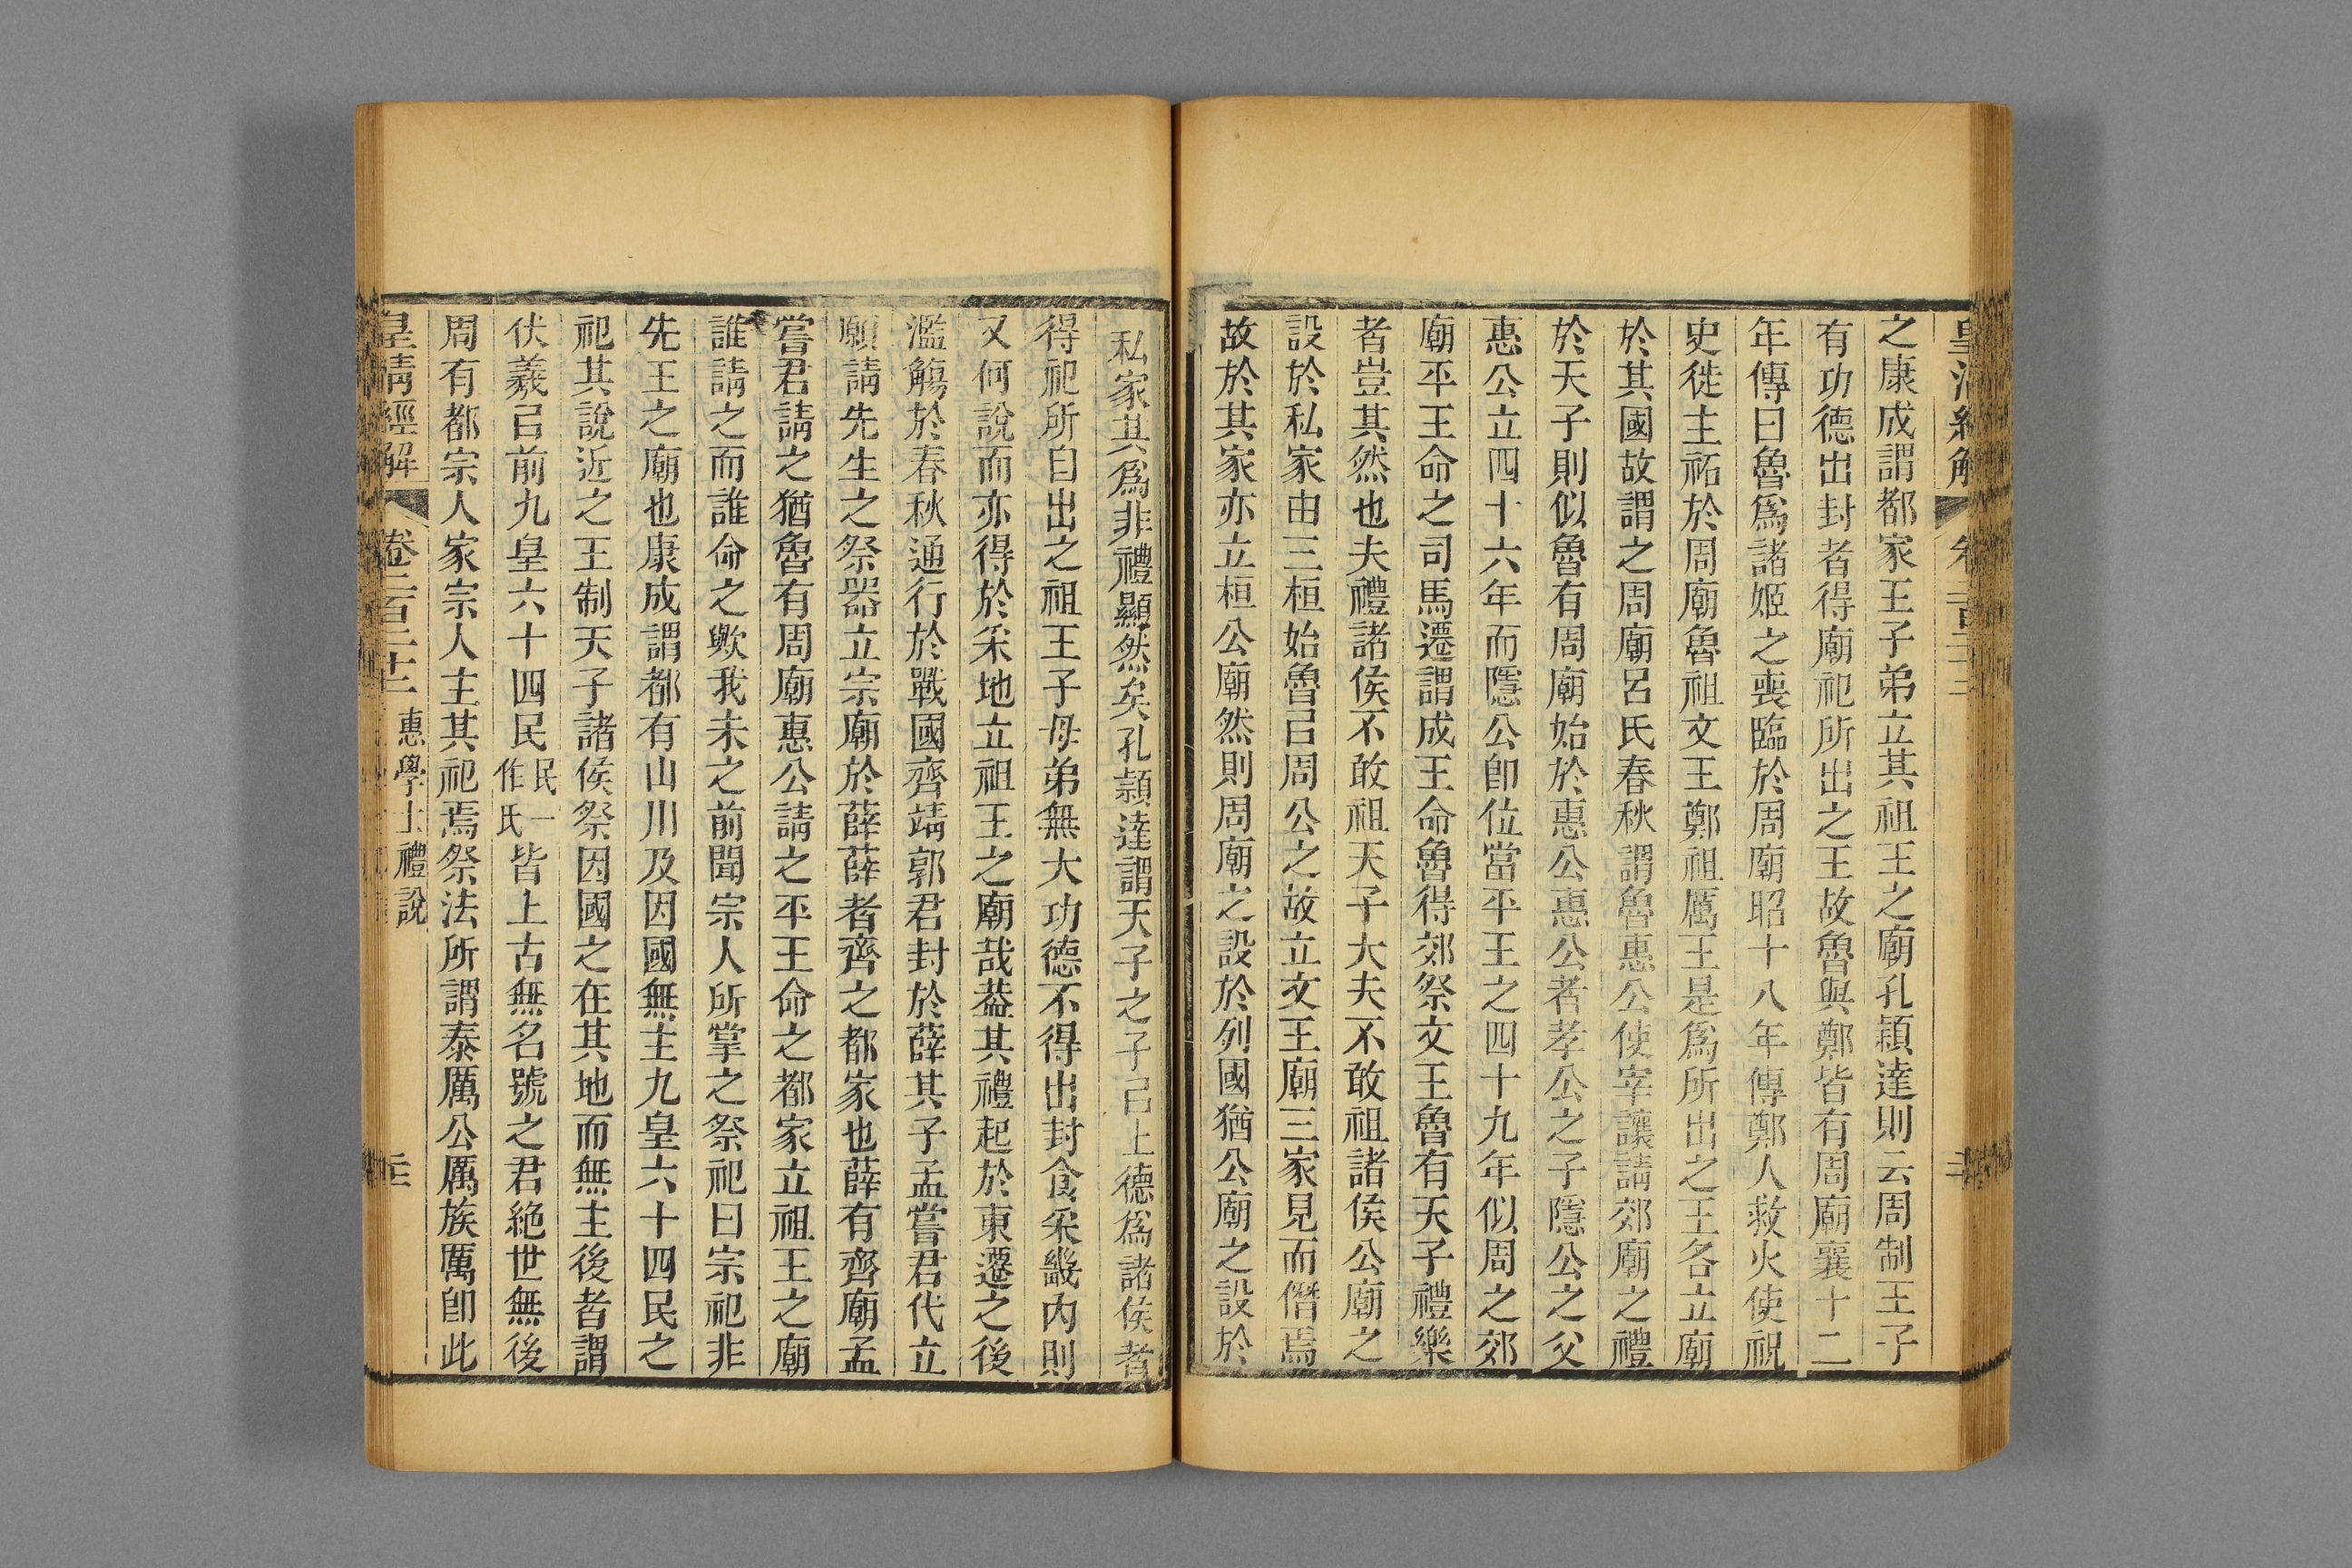 之康成謂都家王子弟立其祖王之廟孔穎達則云周制王子
有功德出封者得廟祀所出之王故魯與鄭皆有周廟襄十二
年傳曰魯爲諸姬之喪臨於周廟昭十八年傳鄭人救火使祝
史徙主祏於周廟魯祖文王鄭祖厲王是爲所出之王各立廟
於其國故謂之周廟呂氏春秋謂魯惠公使宰讓請郊廟之禮
於天子則似魯有周廟始於惠公惠公者孝公之子隱公之父
惠公立四十六年而隱公卽位當平王之四十九年似周之郊
廟平王命之司馬遷謂成王命魯得郊祭文王魯有天子禮樂
者豈其然也夫禮諸侯不敢祖天子大夫不敢祖諸侯公廟之
設於私家由三桓始魯㠯周公之故立文王廟三家見而僭焉
故於其家亦立桓公廟然則周廟之設於列國猶公廟之設於
私家其爲非禮顯然矣孔穎達謂天子之子㠯上德爲諸侯者
得祀所自出之祖王子母弟無大功德不得出封食采畿內則
又何說而亦得於采地立祖王之廟哉葢其禮起於東遷之後
濫觴於春秋通行於戰國齊靖郭君封於薛其子孟嘗君代立
願請先生之祭器立宗廟於薛薛者齊之都家也薛有齊廟孟
嘗君請之猶魯有周廟惠公請之平王命之都家立祖王之廟
誰請之而誰命之歟我未之前聞宗人所掌之祭祀曰宗祀非
先王之廟也康成謂都有山川及因國無主九皇六十四民之
祀其說近之王制天子諸侯祭因國之在其地而無主後者謂
伏羲㠯前九皇六十四民民一作氏皆上古無名號之君絶世無後
周有都宗人家宗人主其祀焉祭法所謂泰厲公厲族厲卽此
皇清經解 卷二百二十二 惠學士禮說